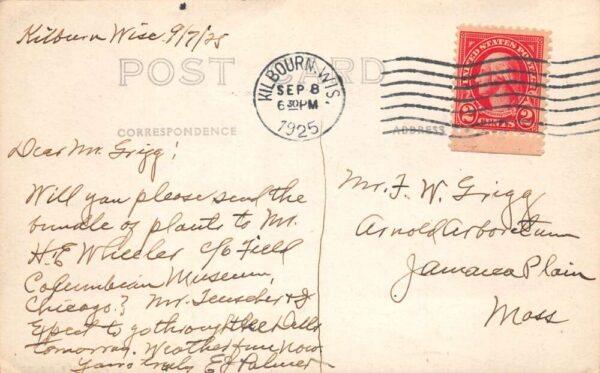 Kilburn Wisc 9/7/25
POST CARD
KILBOURN, WIS.
SEP 8
6 30 PM
1925
UNITED STATES POSTAGE
2 CENTS 2
CORRESPONDENCE
ADDRESS
Dear Mr. Grigg!
Will you please send the
bundle of plants to Mr.
H. E Wheeler c/o Field
Columbian Museum,
Chicago.? Mr. Teuscher & I
Expect to go through the Dells
tomorrow. Weather fine now
Yours truly EJ Palmer
Mr. F. W. Grigg
Arnold Arboretum
Jamaica Plain
Mass